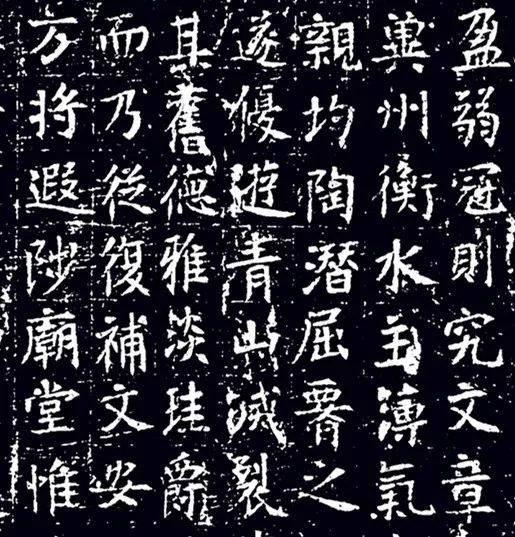 盈弱冠則究文章
冀州衡水主薄氣
親均陶潛屈之
遂優遊青山滅裂
其舊德雅淡珪爵
而乃從復補文安
方將遐陟廟堂惟